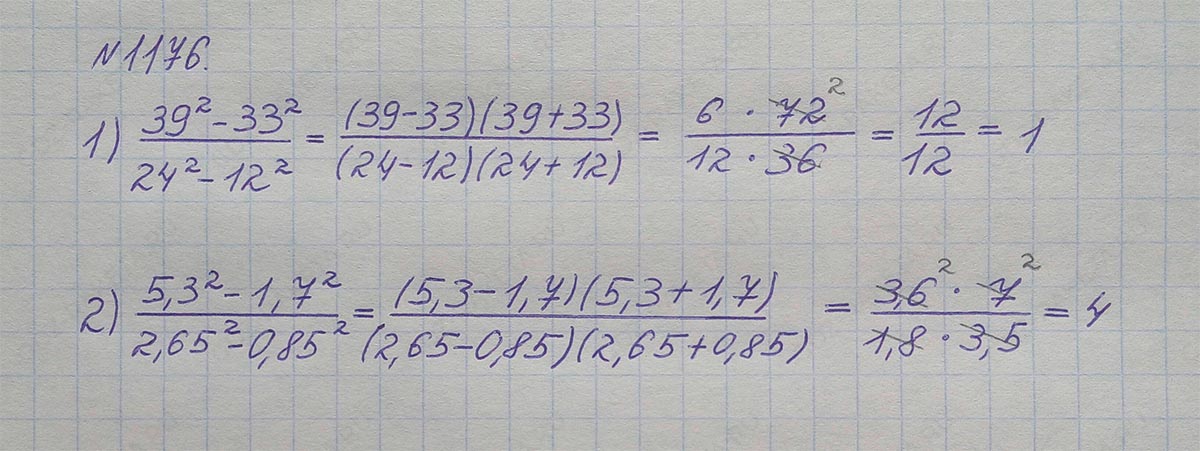 №1176.
1) (39² - 33²)/(24² - 12²) = ((39-33)(39+33))/((24-12)(24+12)) = (6 · 72²)/(12 · 36) = 12/12 = 1
2) (5,3² - 1,7²)/(2,65² - 0,85²) = ((5,3-1,7)(5,3+1,7))/((2,65-0,85)(2,65+0,85)) = (3,6² · 7²)/(1,8 · 3,5) = 4